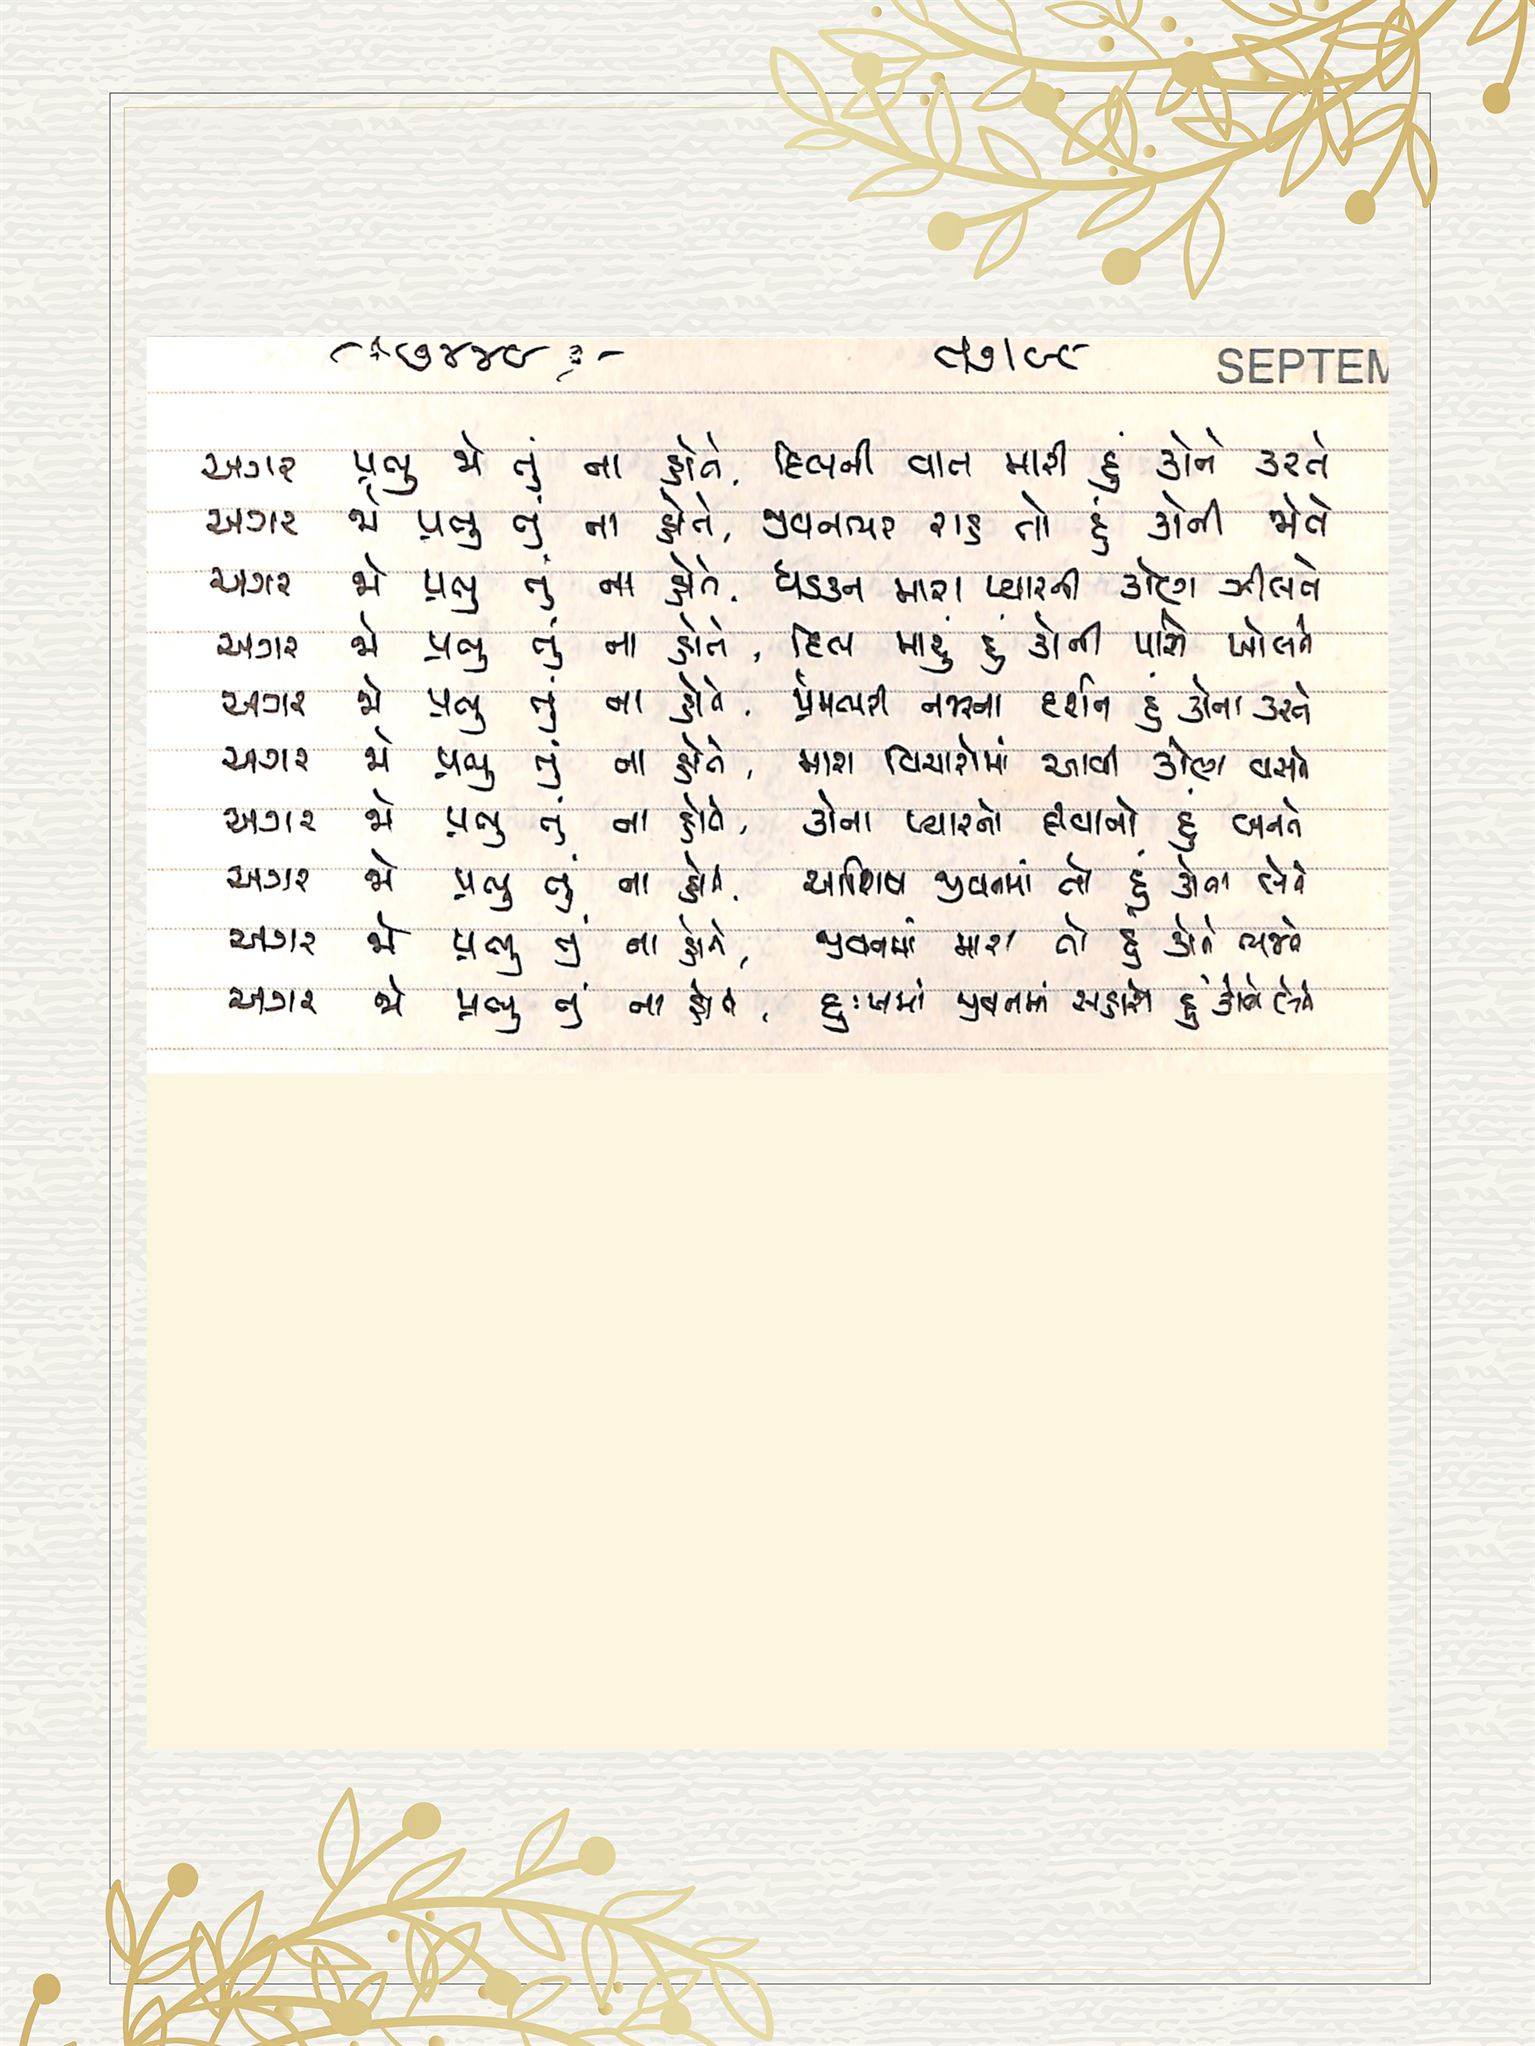 SEPTEM
અગર પ્રભુ જો તું ના હોતે, દિલની વાત મારી હું કોને કરતે
અગર જો પ્રભુ તું ના હોતે, જીવનભર રાહ તો હું કોની જોતે
અગર જો પ્રભુ તું ના હોતે, ધડકન મારા પ્યારની કોણ ઝીલતે
અગર જો પ્રભુ તું ના હોતે, દિલ મારું હું કોની પાસે ખોલતે
અગર જો પ્રભુ તું ના હોતે, પ્રેમભરી નજરના દર્શન હું કોના કરતે
અગર જો પ્રભુ તું ના હોતે, મારા વિચારોમાં આવી કોણ વસતે
અગર જો પ્રભુ તું ના હોતે, કોના પ્યારનો દીવાનો હું બનતે
અગર જો પ્રભુ તું ના હોતે, આશિષ જીવનમાં તો હું કોના લેતે
અગર જો પ્રભુ તું ના હોતે, જીવનમાં મારા તો હું કોને ભજતે
અગર જો પ્રભુ તું ના હોતે, દુઃખમાં જીવનમાં સહારો હું કોનો લેતે